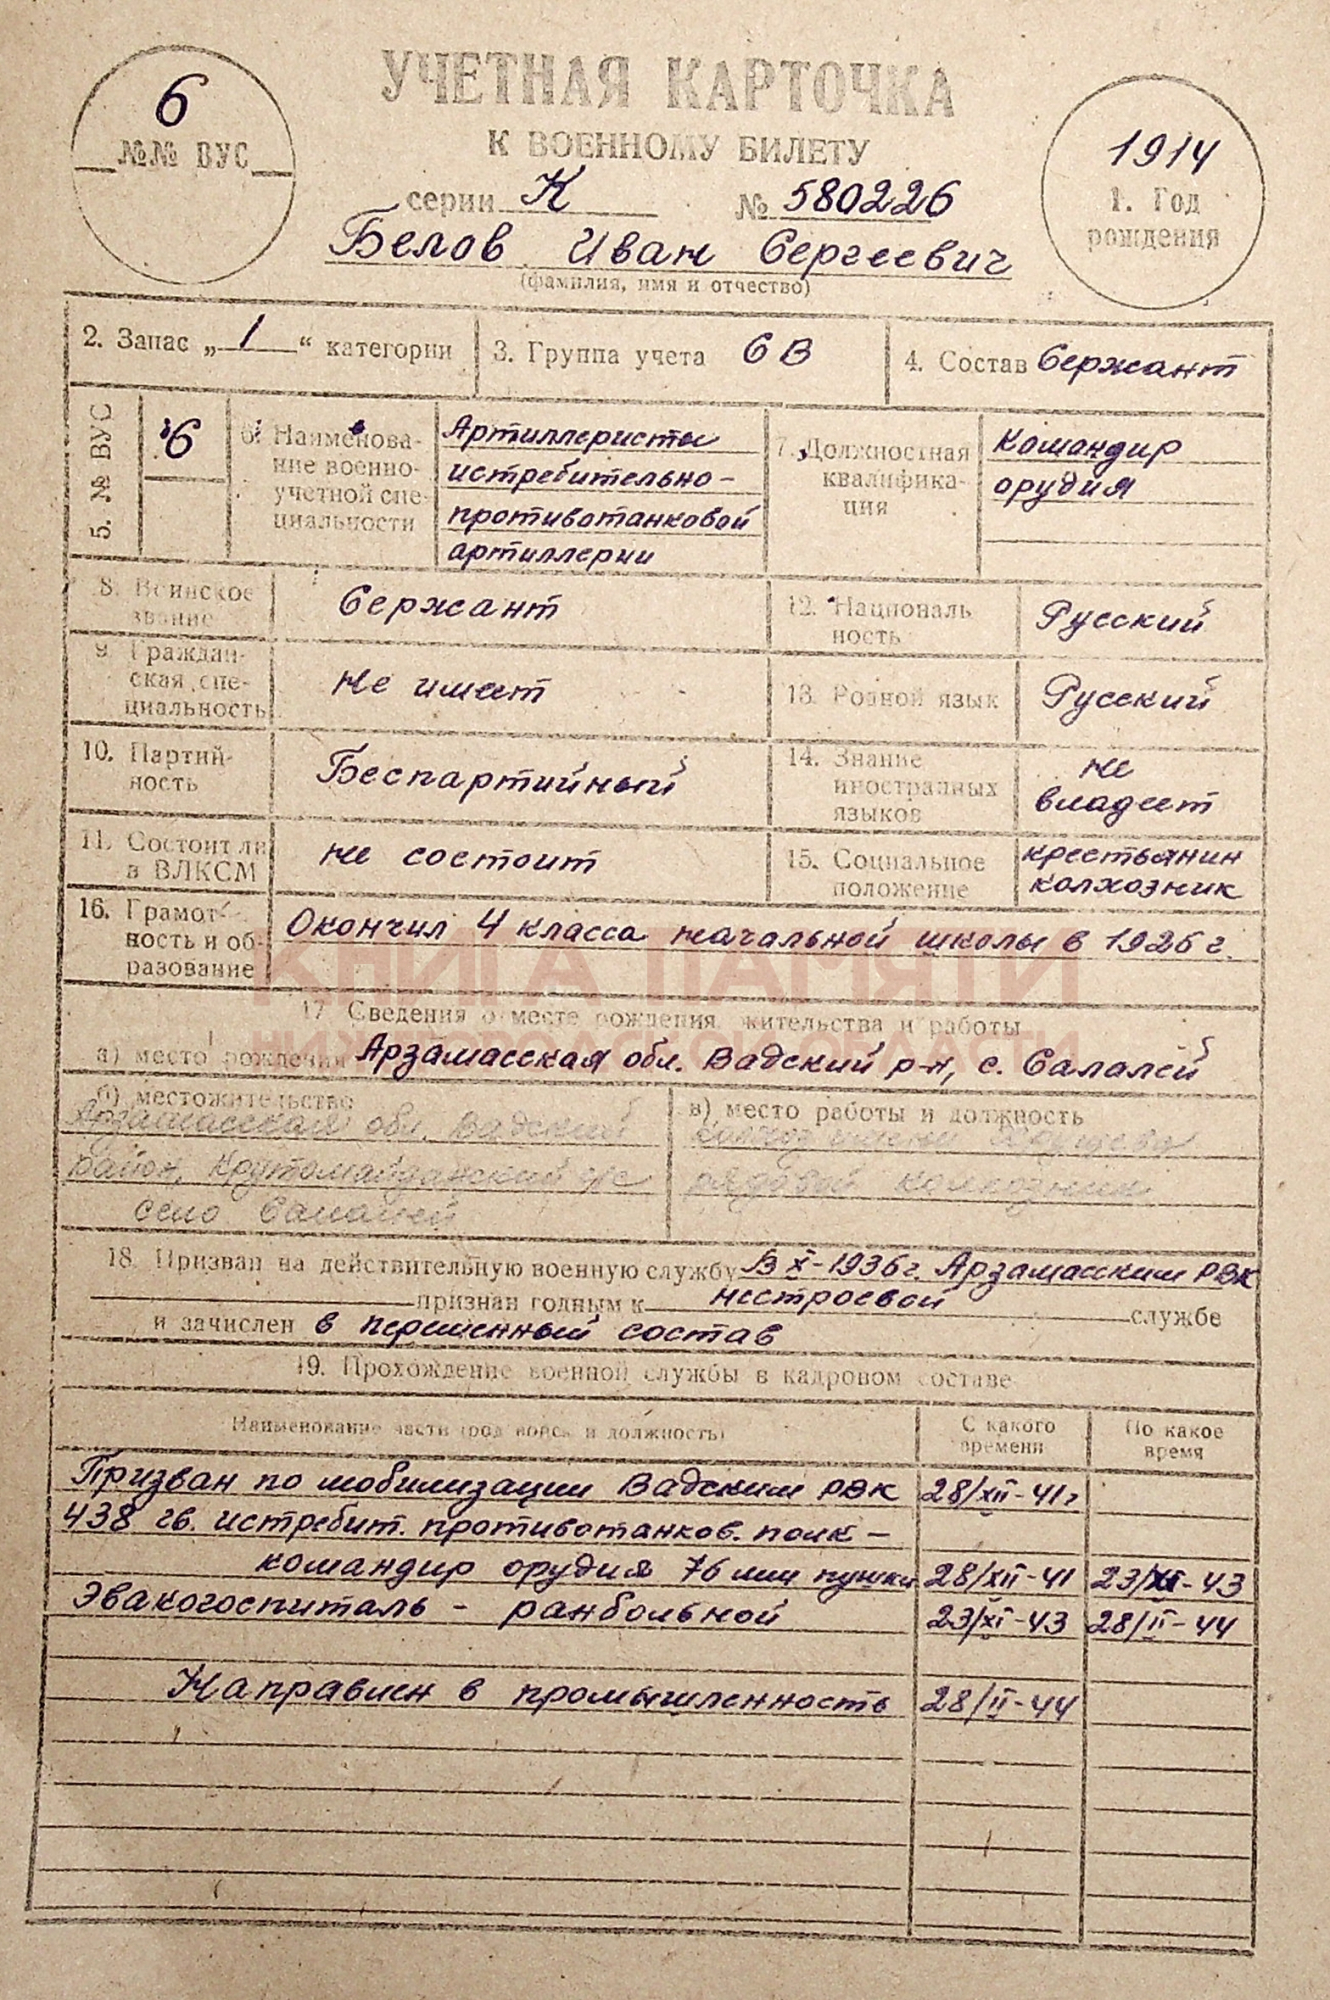 УЧЕТНАЯ КАРТОЧКА
К ВОЕННОМУ БИЛЕТУ
серии К № 580226
Белов Иван Сергеевич
(фамилия, имя и отчество)
6
№№ ВУС
1914
1. Год
рождения
2. Запас „1“ категории
3. Группа учета 6В
4. Состав Сержант
5. № ВУС
6
6. Наименова-
ние военно-
учетной спе-
циальности
Артиллеристы
истребительно-
противотанковой
артиллерии
7. Должностная
квалифика-
ция
Командир
орудия
8. Воинское
звание
Сержант
12. Националь
ность
Русский
9. Граждан-
ская спе-
циальность
не имеет
13. Родной язык
Русский
10. Партий-
ность
Беспартийный
14. Знание
иностранных
языков
не
владеет
11. Состоит ли
в ВЛКСМ
не состоит
15. Социальное
положение
крестьянин
колхозник
16. Грамот-
ность и об-
разование
Окончил 4 класса начальной школы в 1926 г.
КНИГА ПАМЯТИ
НИЖЕГОРОДСКОЙ ОБЛАСТИ
17. Сведения о месте рождения, жительства и работы
а) место рождения Арзамасская обл. Вадский р-н, с. Салалей
б) местожительство
Арзамасская обл. Вадский
район, Крутомайданский с/с
село Салалей
в) место работы и должность
колхоз имени Хрущева
рядовой колхозник
18. Призван на действительную военную службу В X-1936 г. Арзамасским РВК
признан годным к нестроевой службе
и зачислен в переменный состав
19. Прохождение военной службы в кадровом составе
Наименование части (род войск и должность)
С какого
времени
По какое
время
Призван по мобилизации Вадским РВК 28/XII-41г
438 гв. истребит. противотанков. полк -
командир орудия 76 мм пушки 28/XII-41 23/XI-43
Эвакогоспиталь - ранбольной 23/XI-43 28/II-44
Направлен в промышленность 28/II-44